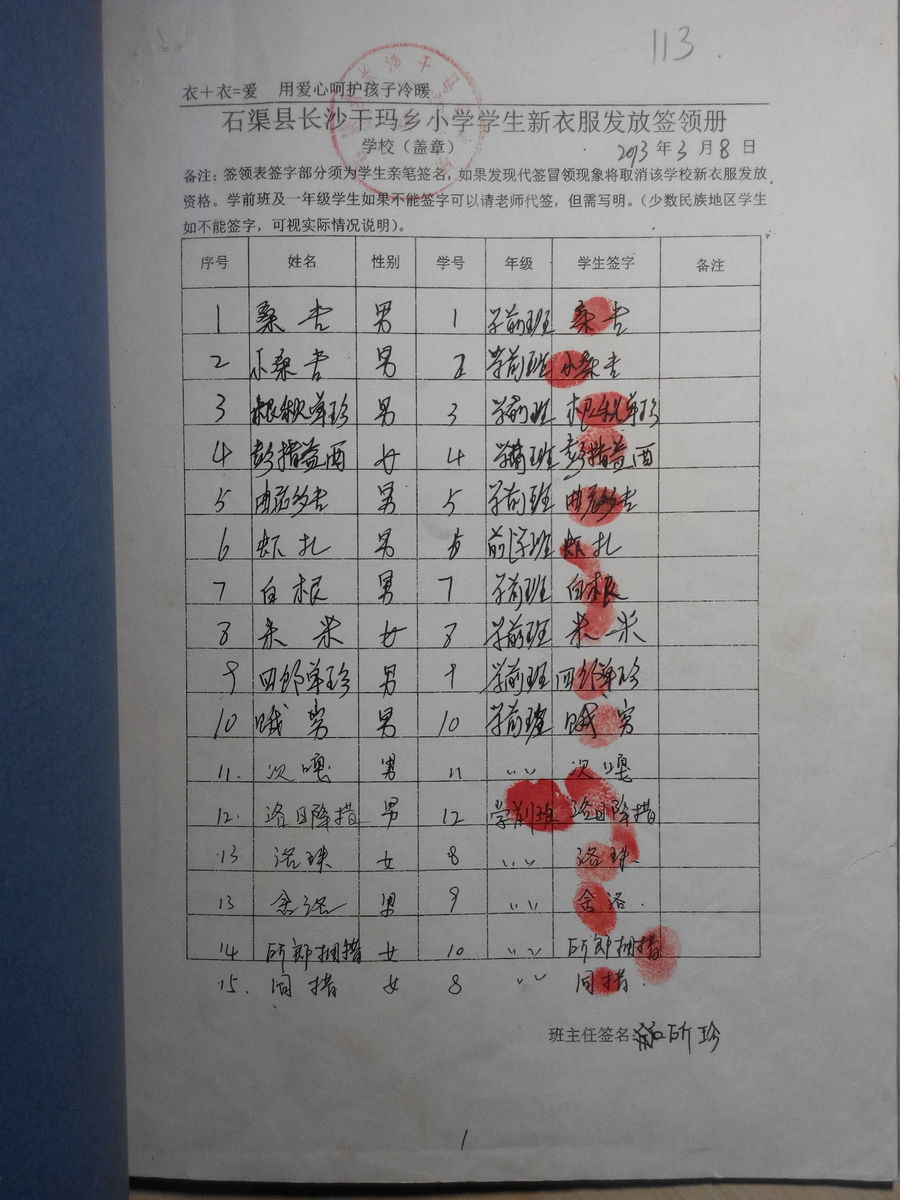 113
衣＋衣=爱 用爱心呵护孩子冷暖
石渠县长沙干玛乡小学学生新衣服发放签领册
学校（盖章） 2013 年 3 月 8 日
备注：签领表签字部分须为学生亲笔签名，如果发现代签冒领现象将取消该学校新衣服发放
资格。学前班及一年级学生如果不能签字可以请老师代签，但需写明。（少数民族地区学生
如不能签字，可视实际情况说明）。
序号 姓名 性别 学号 年级 学生签字 备注
1 桑吉 男 1 学前班 桑吉
2 小桑吉 男 2 学前班 小桑吉
3 根秋单珍 男 3 学前班 根秋单珍
4 彭措益西 女 4 学前班 彭措益西
5 男 5 学前班
6 虾扎 男 6 前学班 虾扎
7 白根 男 7 学前班 白根
8 女 8 学前班
9 四郎单珍 男 9 学前班 四郎单珍
10 哦穷 男 10 学前班 哦穷
11. 次嘎 男 11 〃 次嘎
12. 洛日降措 男 12 学前班 洛日降措
13 洛珠 女 8 〃 洛珠
13 舍洛 男 9 〃 舍洛
14 所郎拥措 女 10 〃 所郎拥措
15. 女 8 〃
班主任签名:
1